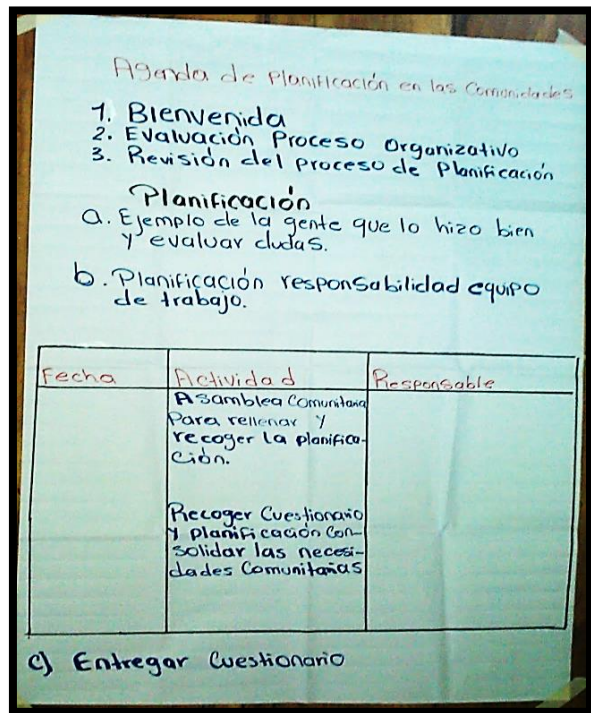 Agenda de Planificación en las Comunidades
1. Bienvenida
2. Evaluación Proceso Organizativo
3. Revisión del proceso de Planificación
Planificación
a. Ejemplo de la gente que lo hizo bien
y evaluar dudas.
b. Planificación responsabilidad equipo
de trabajo.
Fecha Actividad Responsable
Asamblea Comunitaria
Para rellenar y
recoger la planifica-
ción.
Recoger Cuestionario
y planificación con-
solidar las necesi-
dades Comunitarias
c) Entregar Cuestionario